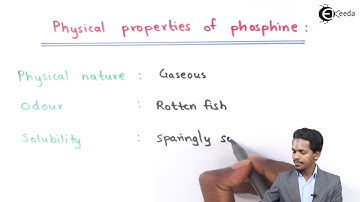 Ekeeda
Physical properties of phosphine :
Physical nature : Gaseous
Odour : Rotten fish
Solubility : Sparingly so